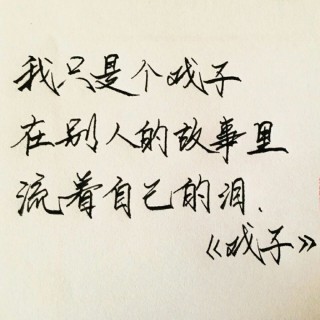 我只是个戏子
在别人的故事里
流着自己的泪.
《戏子》